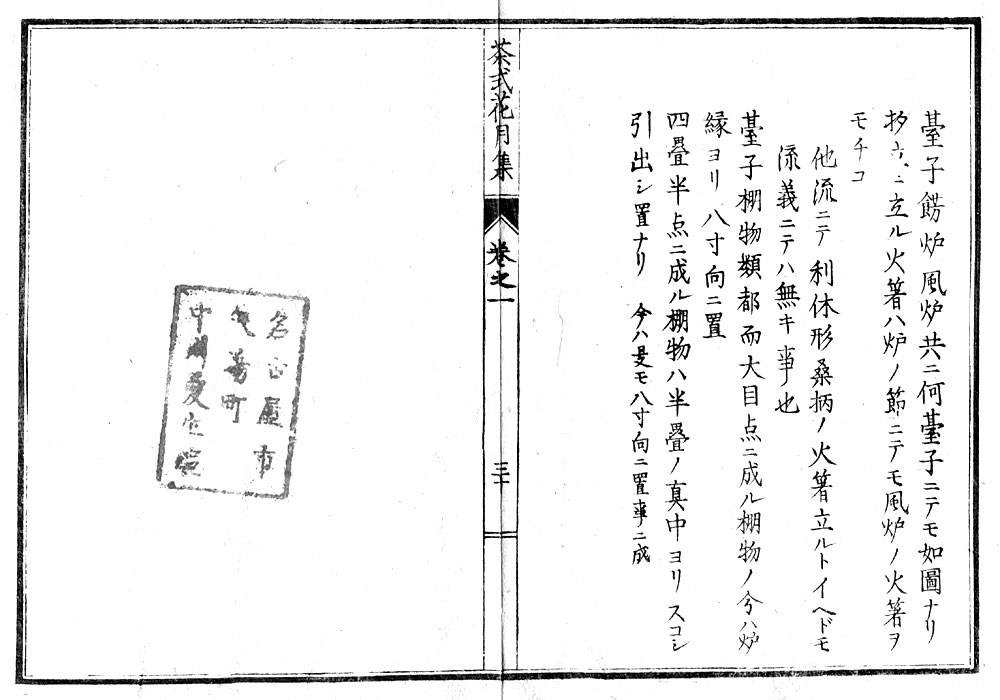 臺子餝炉風炉共ニ何臺子ニテモ如圖ナリ
杓立ニ立ル火箸ハ炉ノ節ニテモ風炉ノ火箸ヲ
モチコ
他流ニテ利休形桑柄ノ火箸立ルトイヘドモ
流義ニテハ無キ事也
臺子棚物類都而大目点ニ成ル棚物ノ分ハ炉
縁ヨリ八寸向ニ置
四畳半点ニ成ル棚物ハ半畳ノ真中ヨリスコシ
引出シ置ナリ 今ハ是モ八寸向ニ置事ニ成
茶式花月集
巻之一
三十
名古屋市
町
中